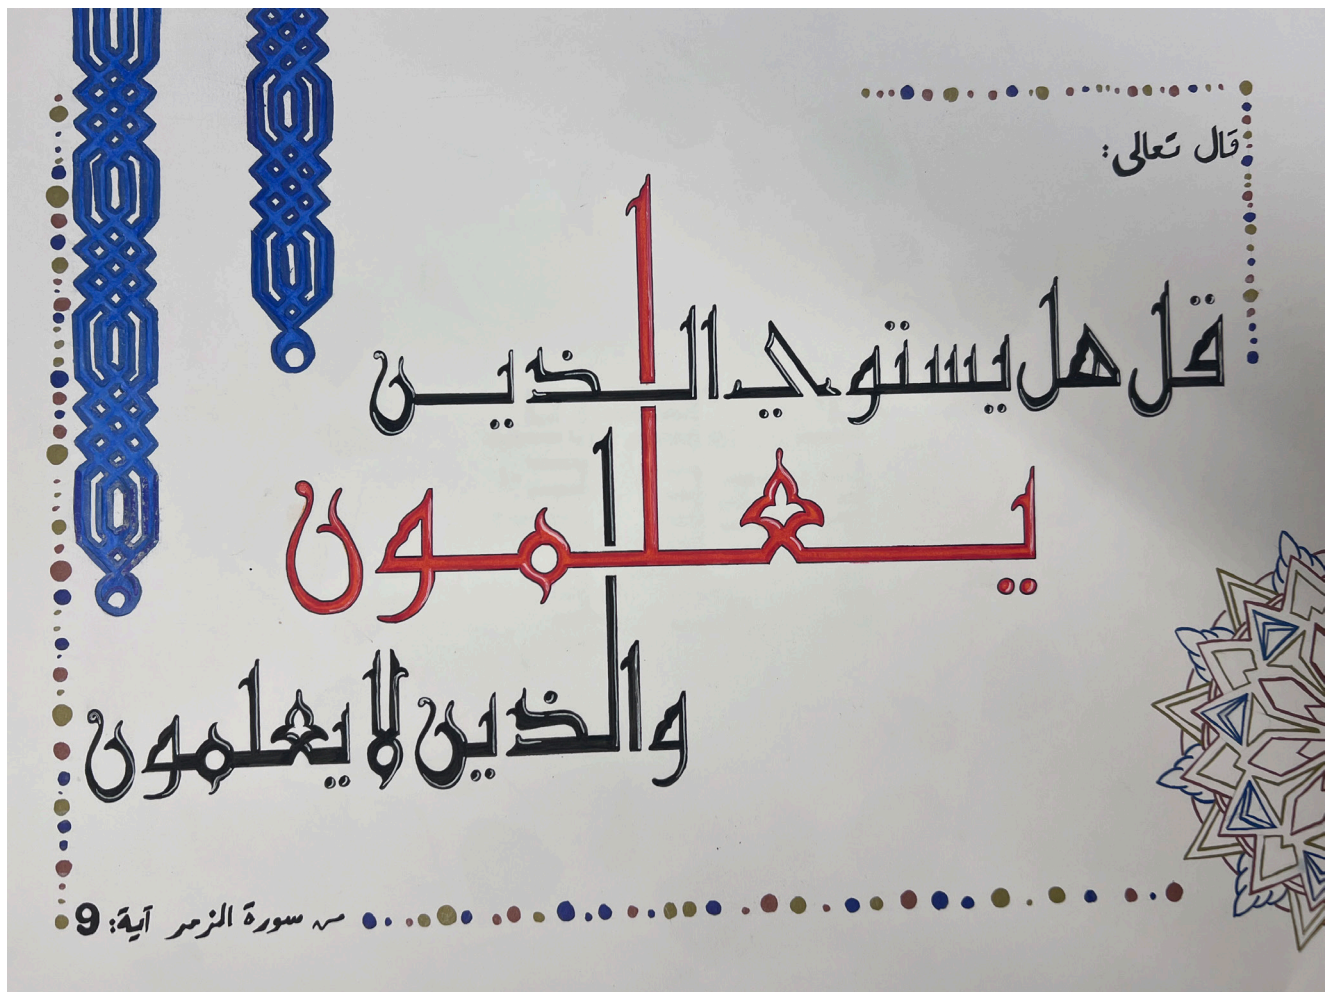 قال تعالى:
قل هل يستوي الذين
يعلمون
والذين لا يعلمون
من سورة الزمر آية: 9